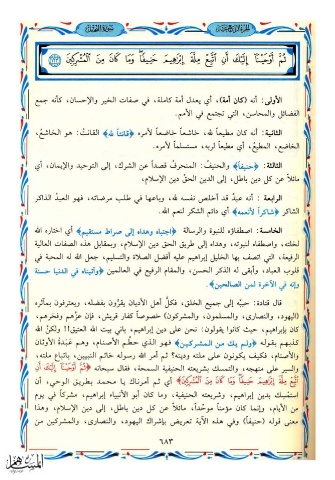 الجزء الرابع عشر
سورة النحل
ثُمَّ أَوْحَيْنَآ إِلَيْكَ أَنِ ٱتَّبِعْ مِلَّةَ إِبْرَٰهِيمَ حَنِيفًا ۖ وَمَا كَانَ مِنَ ٱلْمُشْرِكِينَ
الأولى: أنه (كان أمة)، أي يعدل أمة كاملة، في صفات الخير والإحسان، كأنه جمع
الفضائل والمحاسن، التي تجتمع في الأمم.
الثانية: أنه كان مطيعاً لله، خاشعاً خاضعاً لأمره ﴿قانتاً لله﴾ القانت: هو الخاشع،
الخاضع، المطيع، أي مطيعاً لربه، مستسلماً لأمره.
الثالثة: ﴿حنيفاً﴾ والحنيف: المنحرف قصداً عن الشرك، إلى التوحيد والإيمان، أي
مائلاً عن كل دين باطل، إلى الدين الحقّ دين الإسلام.
الرابعة: أنه عبدٌ قد أخلص نفسه لله، وباعها في طلب مرضاته، فهو العبدُ الذاكر
الشاكر ﴿شاكراً لأنعمه﴾ أي دائم الشكر لنعم الله.
الخامسة: اصطفاؤه للنبوة والرسالة ﴿اجتباه وهداه إلى صراط مستقيم﴾ أي اختاره الله
لخلته، واصطفاه لنبوته، وهداه إلى طريق الحق دين الإسلام، وبمقابل هذه الصفات العالية
الرفيعة، التي اتصف بها الخليل إبراهيم عليه أفضل الصلاة والتسليم، جعل الله له المحبة في
قلوب العباد، وأبقى له الذكر الحسن، والمقام الرفيع في العالمين ﴿وآتيناه في الدنيا حسنة
وإنه في الآخرة لمن الصالحين﴾.
قال قتادة: حبَّبه إلى جميع الخلق، فكلُّ أهل الأديان يقرُّون بفضله، ويعترفون بمآثره
(اليهود، والنصارى، والمسلمون، والمشركون) خصوصاً كفار قريش، فإن عزَّهم وفخرهم،
كان بإبراهيم، حيث كانوا يقولون: نحن على دين إبراهيم، باني بيت الله العتيق!! ولكنَّ الله
كذبهم بقوله ﴿ولم يك من المشركين﴾ فهو الذي حطَّم الأصنام، وهم عَبَدةُ الأوثان
والأصنام، فكيف يكونون على ملته ودينه؟ ثم أمر الله رسوله خاتم النبيين، باتباع ملته،
والسير على منهجه، والتمسك بشريعته الحنيفية السمحة، فقال سبحانه ﴿ثُمَّ أَوْحَيْنَآ إِلَيْكَ أَنِ
ٱتَّبِعْ مِلَّةَ إِبْرَٰهِيمَ حَنِيفًا وَمَا كَانَ مِنَ ٱلْمُشْرِكِينَ﴾ أي ثم أمرناك يا محمد بطريق الوحي، أن
استمسك بدين إبراهيم، وشريعته الحنيفية، وما كان أبو الأنبياء إبراهيم، مشركاً في يوم
من الأيام، وإنما كان مؤمناً موحِّداً، مائلاً عن كل دين باطل، إلى دين الإسلام، وهذا
معنى قوله (حنيفاً) وفي هذه الآية تعريض بإشراك اليهود، والنصارى، والمشركين من
٦٨٣